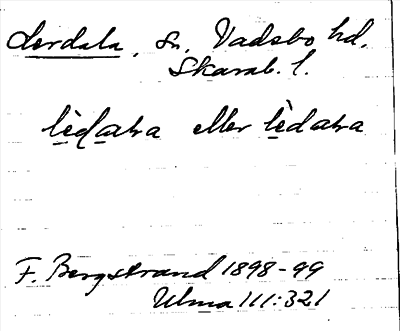 Lerdala, sn. Vadsbo hd.
Skarab. l.
lèdaɯa eller lèdaɯa
F. Bergstrand 1898-99
Ulma 111:321